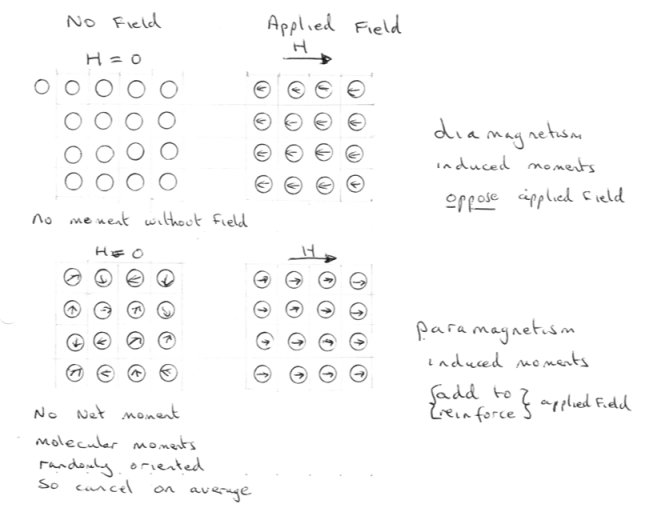 No Field
Applied Field
H = 0
H
diamagnetism
induced moments
oppose applied Field
no moment without Field
H = 0
H
paramagnetism
induced moments
{add to } applied Field
{reinforce}
No Net moment
molecular moments
randomly oriented
So cancel on average